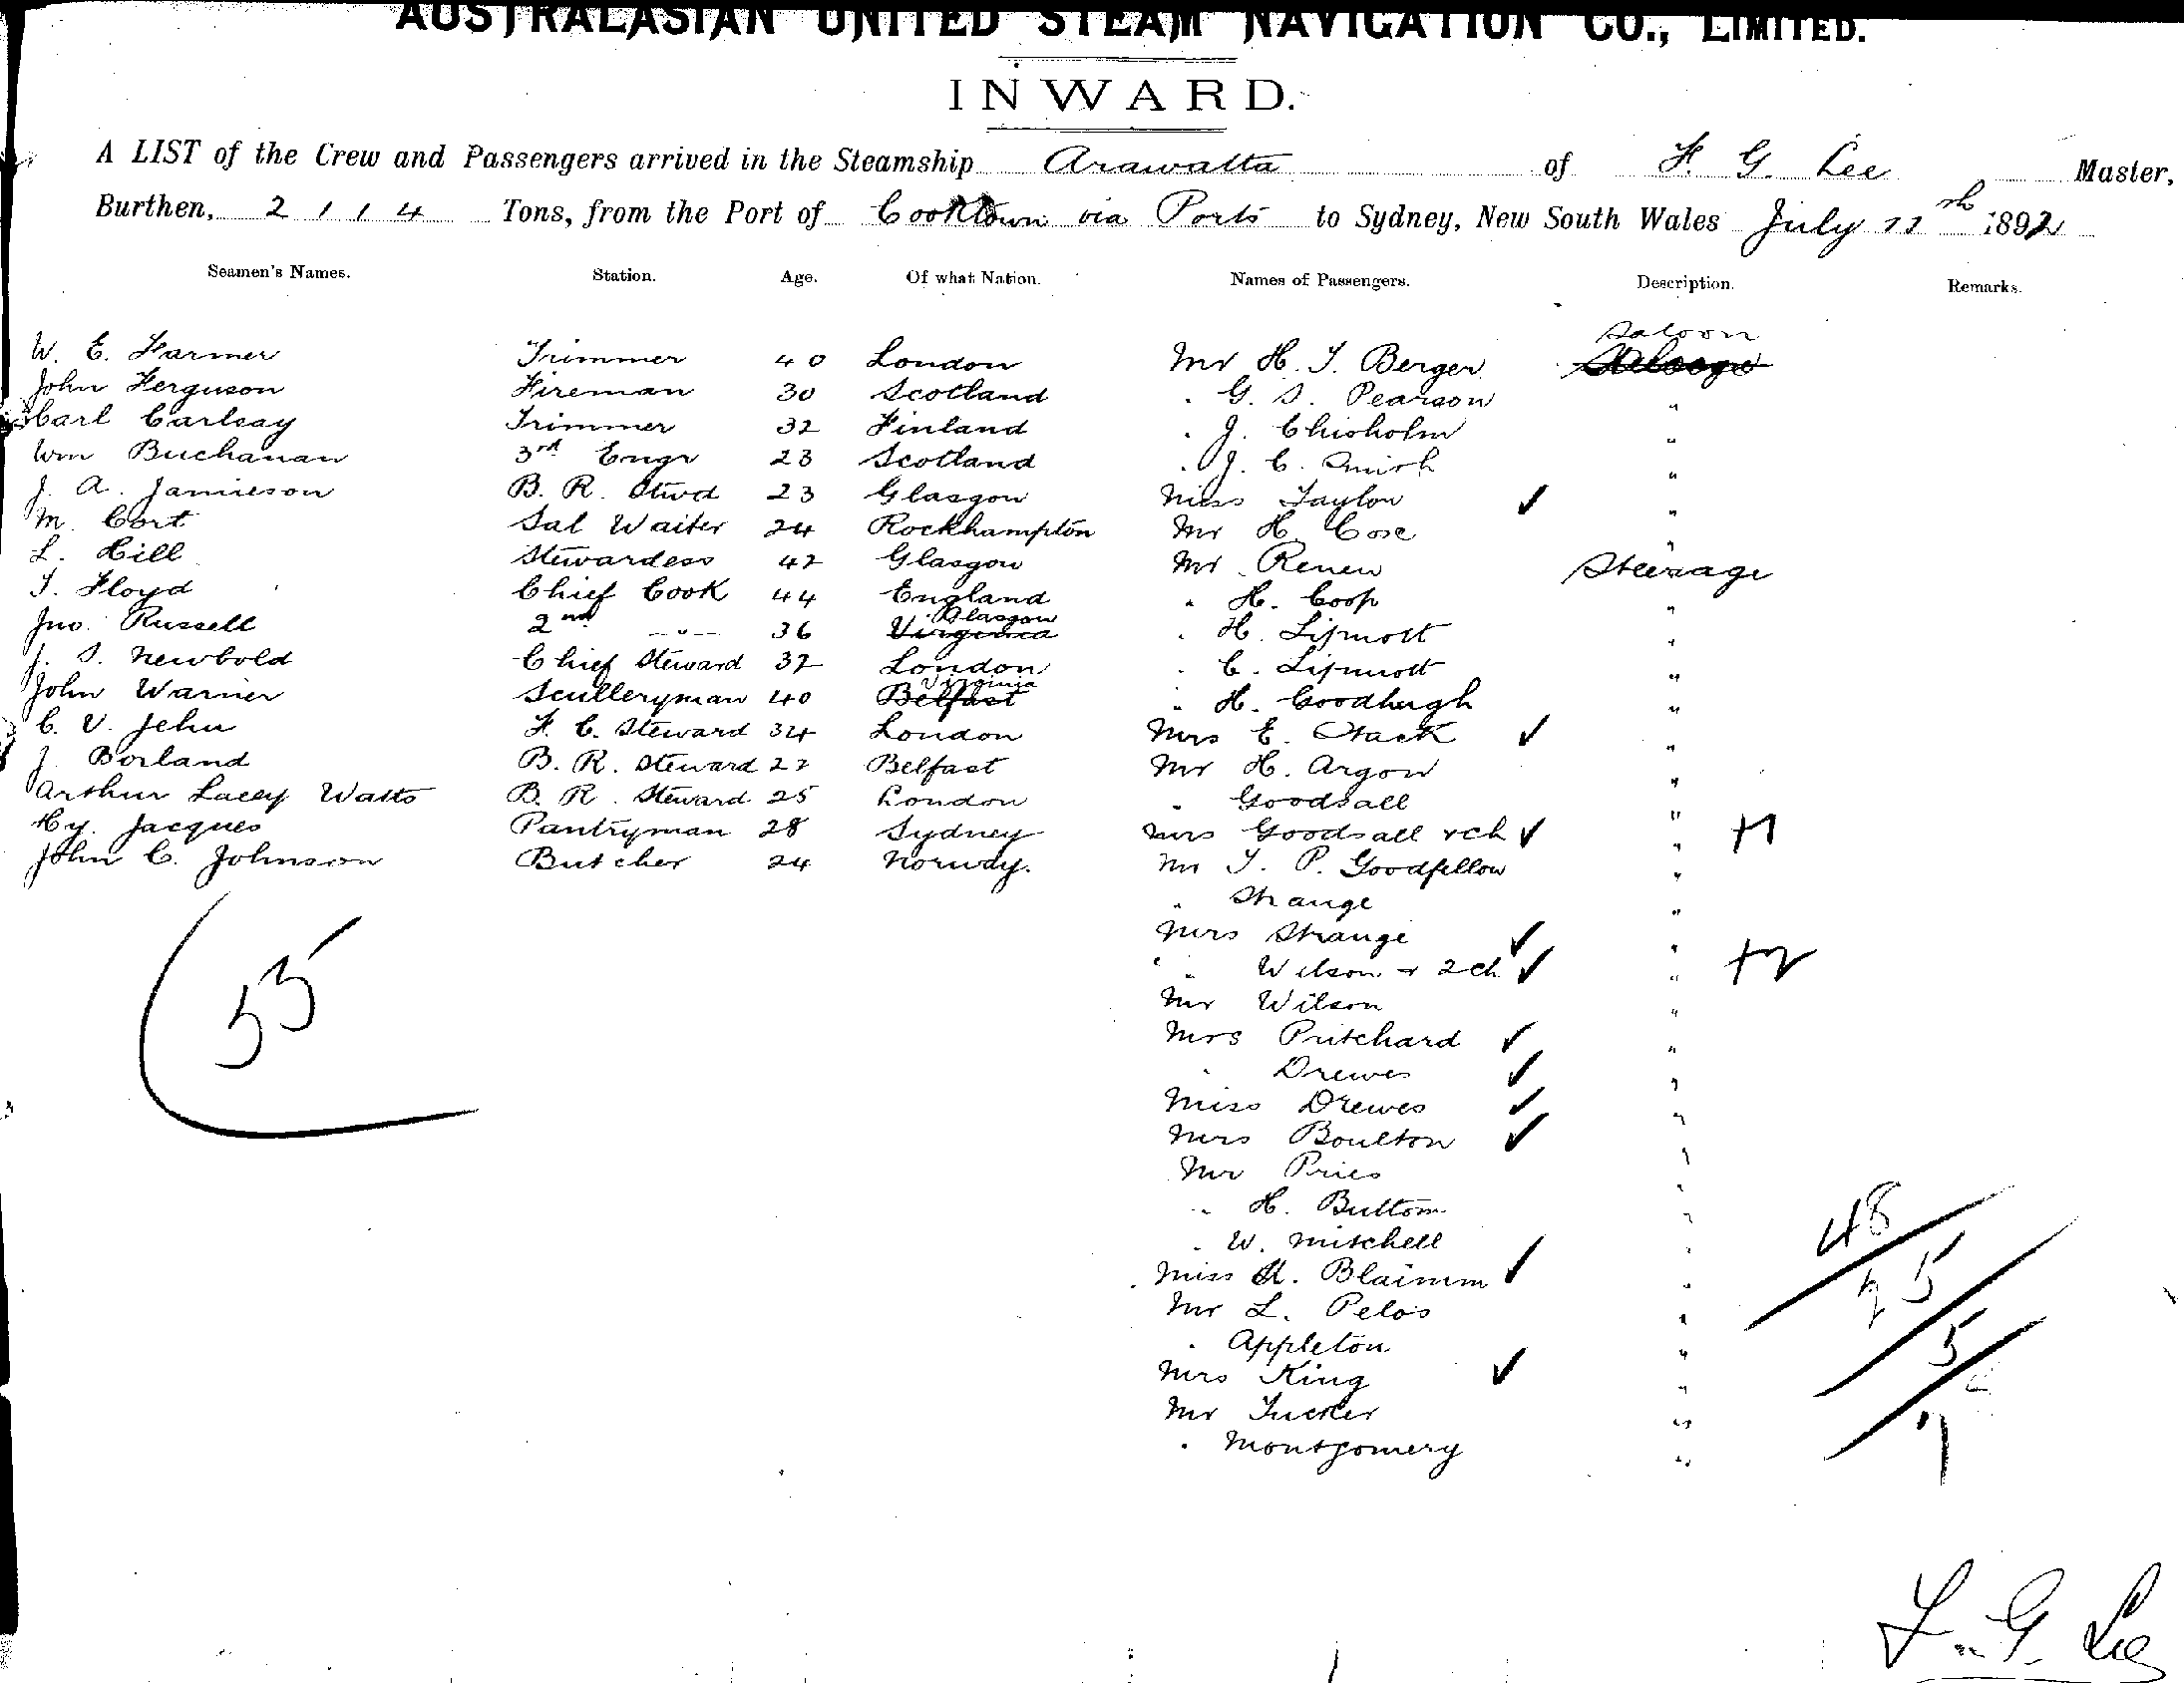 AUSTRALASIAN UNITED STEAM NAVIGATION CO., LIMITED.
INWARD.
A LIST of the Crew and Passengers arrived in the Steamship Arawatta of F. G. Lee Master,
Burthen, 2114 Tons, from the Port of Cooktown via Ports to Sydney, New South Wales July 11th 1892
Seamen's Names. Station. Age. Of what Nation. Names of Passengers. Description. Remarks.
Saloon
W. E. Farmer Trimmer 40 London Mr H. J. Berger
John Ferguson Fireman 30 Scotland " G. S. Pearson "
Carl Carlsay Trimmer 32 Finland " J. Chisholm "
Wm Buchanan 3rd Engr 23 Scotland " J. C. Smith "
J. A. Jamieson B. R. Stwd 23 Glasgow Miss Taylor ✓ "
M. Cort Sal Waiter 24 Rockhampton Mr H. Cose "
L. Hill Stewardess 42 Glasgow Mr Renew Steerage
T. Floyd Chief Cook 44 England " H. Coop "
Jno. Russell 2nd " 36 Virginia Glasgow " H. Lipmott "
J. S. Newbold Chief Steward 37 London " C. Lipmott "
John Warner Sculleryman 40 Belfast Virginia " H. Goodhugh "
C. V. Jehu F. C. Steward 34 London Mrs E. Stack ✓ "
J. Borland B. R. Steward 22 Belfast Mr H. Argow "
Arthur Lacey Watts B. R. Steward 25 London " Goodsall "
Hy. Jacques Pantryman 28 Sydney Mrs Goodsall + ch ✓ " +1
John C. Johnson Butcher 24 Norway. Mr T. P. Goodfellow "
" Strange "
Mrs Strange ✓ "
" Wilson + 2 ch ✓ " +2
Mr Wilson "
Mrs Pritchard ✓ "
" Drewes ✓ "
Miss Drewes ✓ "
Mrs Boulton ✓ "
Mr Pries "
" H. Buttom "
" W. Mitchell "
Miss H. Blaimm ✓ "
Mr L. Pelos "
" Appleton "
Mrs King ✓ "
Mr Tucker "
" Montgomery "
55
48
5
1
F. G. Lee